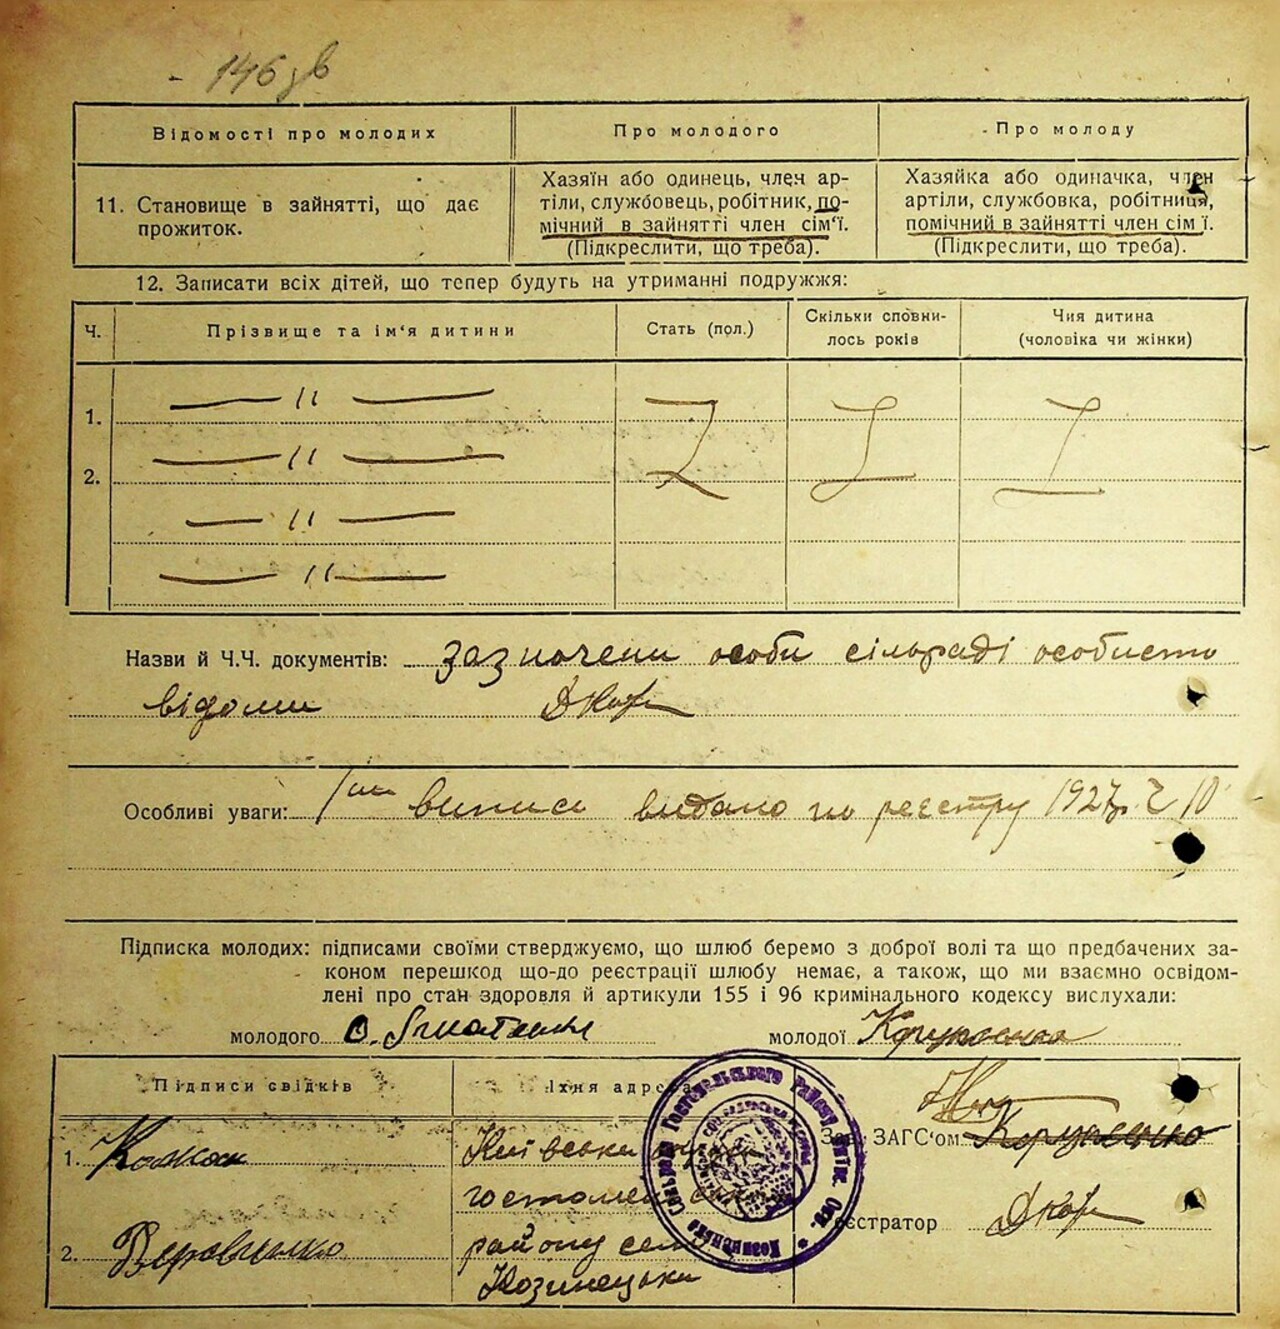 146 зв
Відомості про молодих
Про молодого
Про молоду
11. Становище в зайнятті, що дає
прожиток.
Хазяїн або одинець, член ар-
тіли, службовець, робітник, по-
мічний в зайнятті член сім'ї.
(Підкреслити, що треба).
Хазяйка або одиначка, член
артіли, службовка, робітниця,
помічний в зайнятті член сім'ї.
(Підкреслити, що треба).
12. Записати всіх дітей, що тепер будуть на утриманні подружжя:
Ч.
Прізвище та ім'я дитини
Стать (пол.)
Скільки сповни-
лось років
Чия дитина
(чоловіка чи жінки)
1. — // —
2. — // —
— // —
— // —
Назви й Ч.Ч. документів: зазначени особи сільраді особисто
відоми
Особливі уваги: виписи видано по реєстру 1927р. Ч 10
Підписка молодих: підписами своїми стверджуємо, що шлюб беремо з доброї волі та що предбачених за-
коном перешкод що-до реєстрації шлюбу немає, а також, що ми взаємно освідом-
лені про стан здоровля й артикули 155 і 96 кримінального кодексу вислухали:
молодого
молодої
Підписи свідків
Їхня адреса
1.
2.
Київськи
району
Козинецьки
Зав. ЗАГС'ом
Реєстратор